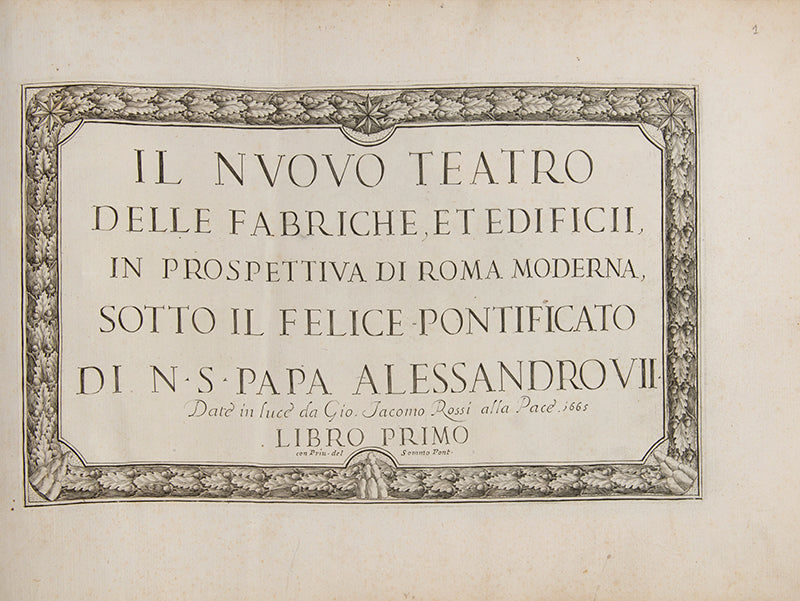 1
IL NVOVO TEATRO
DELLE FABRICHE, ET EDIFICII,
IN PROSPETTIVA DI ROMA MODERNA,
SOTTO IL FELICE PONTIFICATO
DI N·S·PAPA ALESSANDRO VII·
Date in luce da Gio. Jacomo Rossi alla Pace. 1665
LIBRO PRIMO
con Priu·del Sommo Pont·